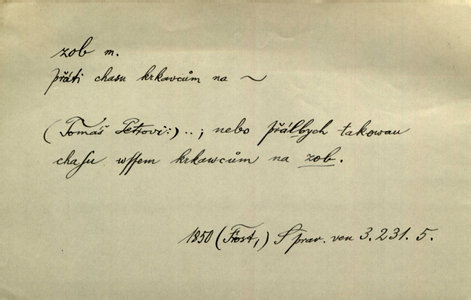 zob m.
přáti chasu krkavcům na ~
(Tomáš Petrovi:) ..; nebo přálbych takowau
chaſu wſſem krkawcům na zob.
1850 (Frost,) S prav. ven 3.231.5.